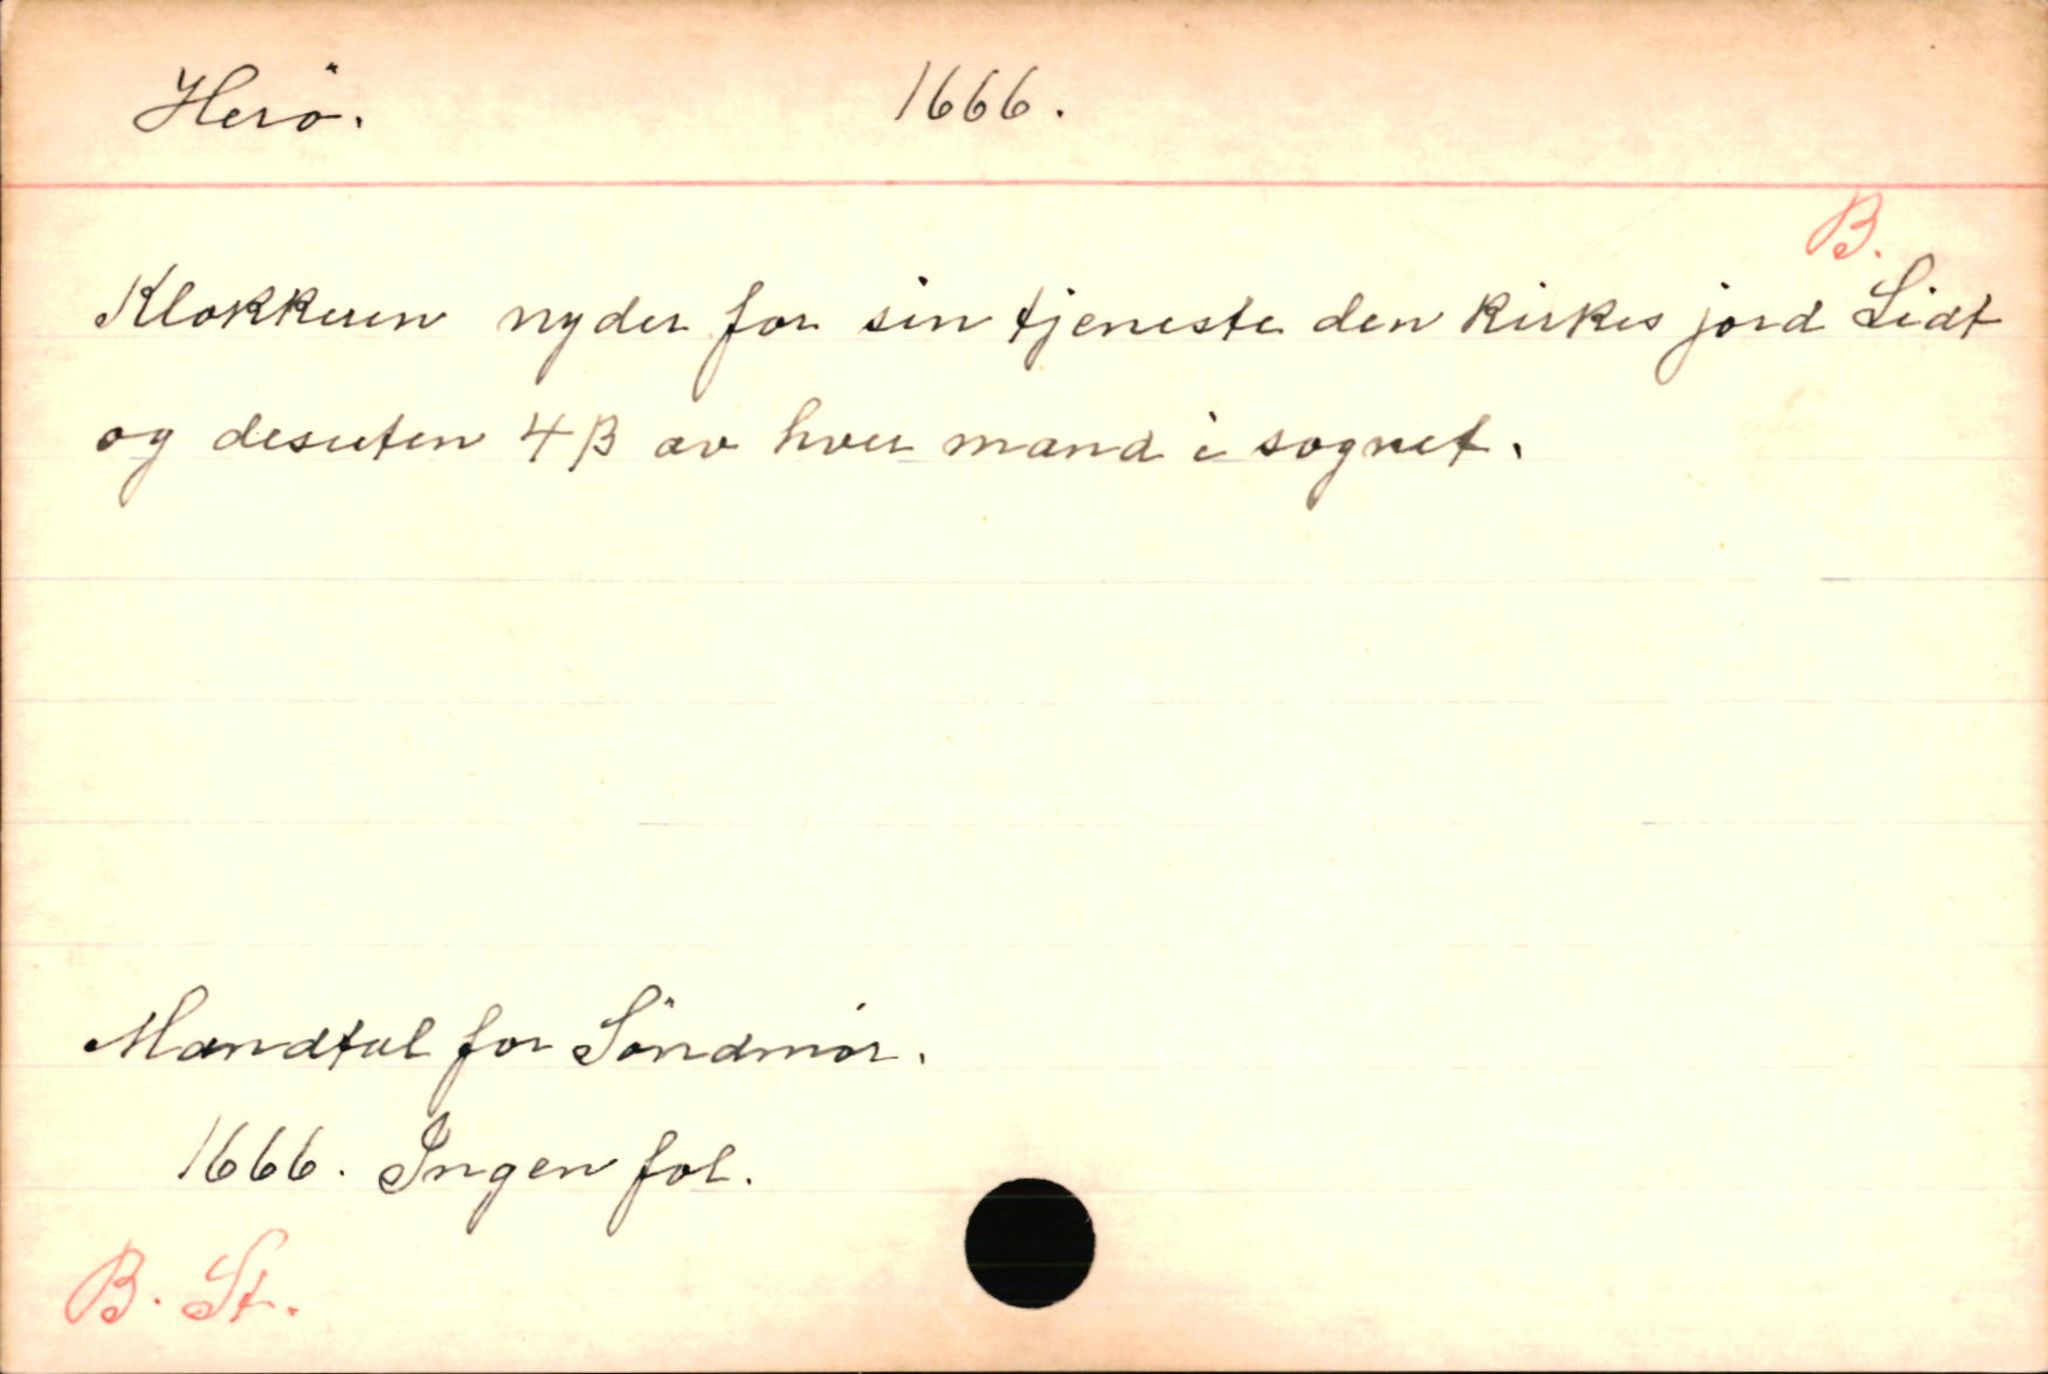 Herö. 1666.
B.
Klokkeren nyder for sin tjeneste den kirkes jord Lidt
og desuten 4 β av hver mand i sognet.
Mandtal for Söndmör.
1666. Ingen fol.
B. St.